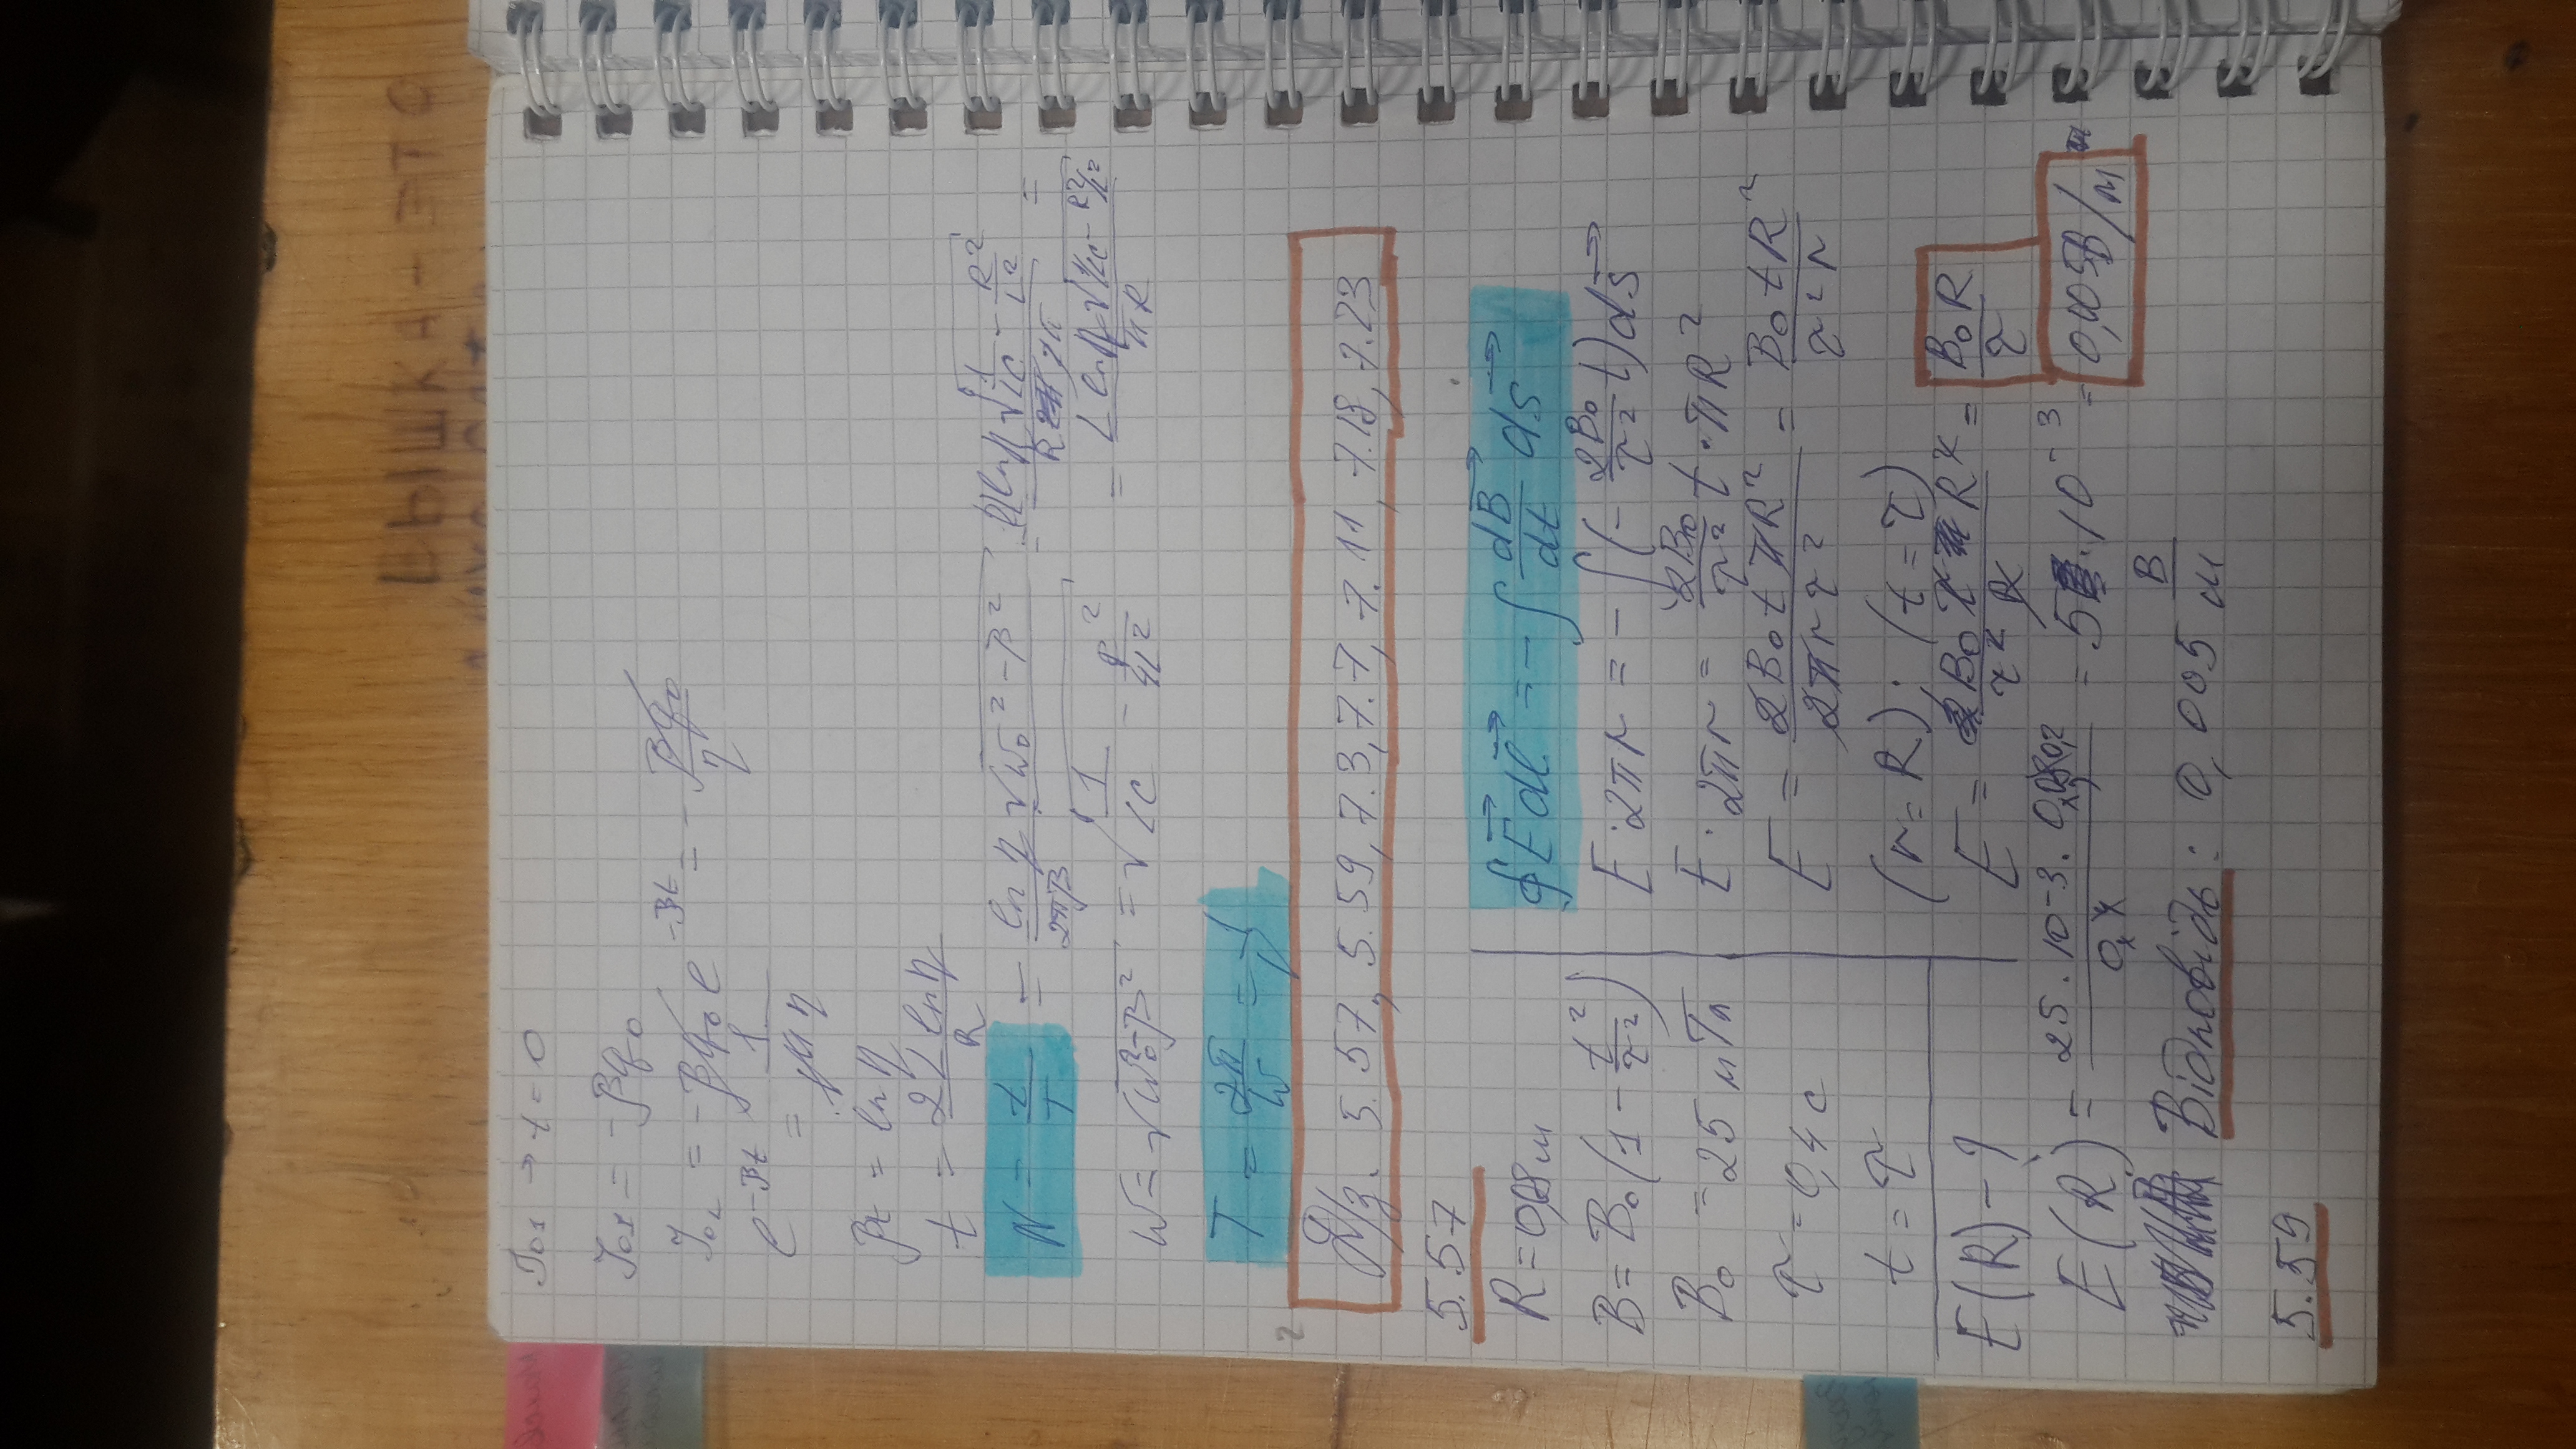 ВЫШКА - ЭТО
I₀₁ → t = 0
I₀₁ = -βq₀
I₀₂ = -βq₀ e^(-βt) = - βq₀/η
e^(-βt) = 1/η
βt = ln η
t = 2L ln η / R
N = t/T = ln η √(ω₀² - β²) / 2πβ = 2L ln η √(1/LC - R²/L²) / R 2π =
ω = √(ω₀² - β²) = √(1/LC - R²/4L²) = L ln η √(1/LC - R²/L²) / πR
T = 2π/ω = 1/ν
Д/з. 5.57, 5.59, 7.3, 7.7, 7.11, 7.18, 7.23
5.57
R = 0,08 м
B = B₀(1 - t²/τ²)
B₀ = 25 мТл
τ = 0,4 с
t = τ
E(R) - ?
∮E⃗ dl⃗ = -∫ dB⃗/dt ds⃗
E · 2πr = -∫(- 2B₀/τ² t) ds⃗
E · 2πr = 2B₀/τ² t · πR²
E = 2B₀tπR² / 2πrτ² = B₀tR² / τ²r
(r = R); (t = τ)
E = B₀τR² / τ²R = B₀R/τ
E(R) = 25 · 10⁻³ · 0,08 0,2 / 0,4 = 5 · 10⁻³ = 0,005 В/м
Відповідь: 0,005 В/м
5.59